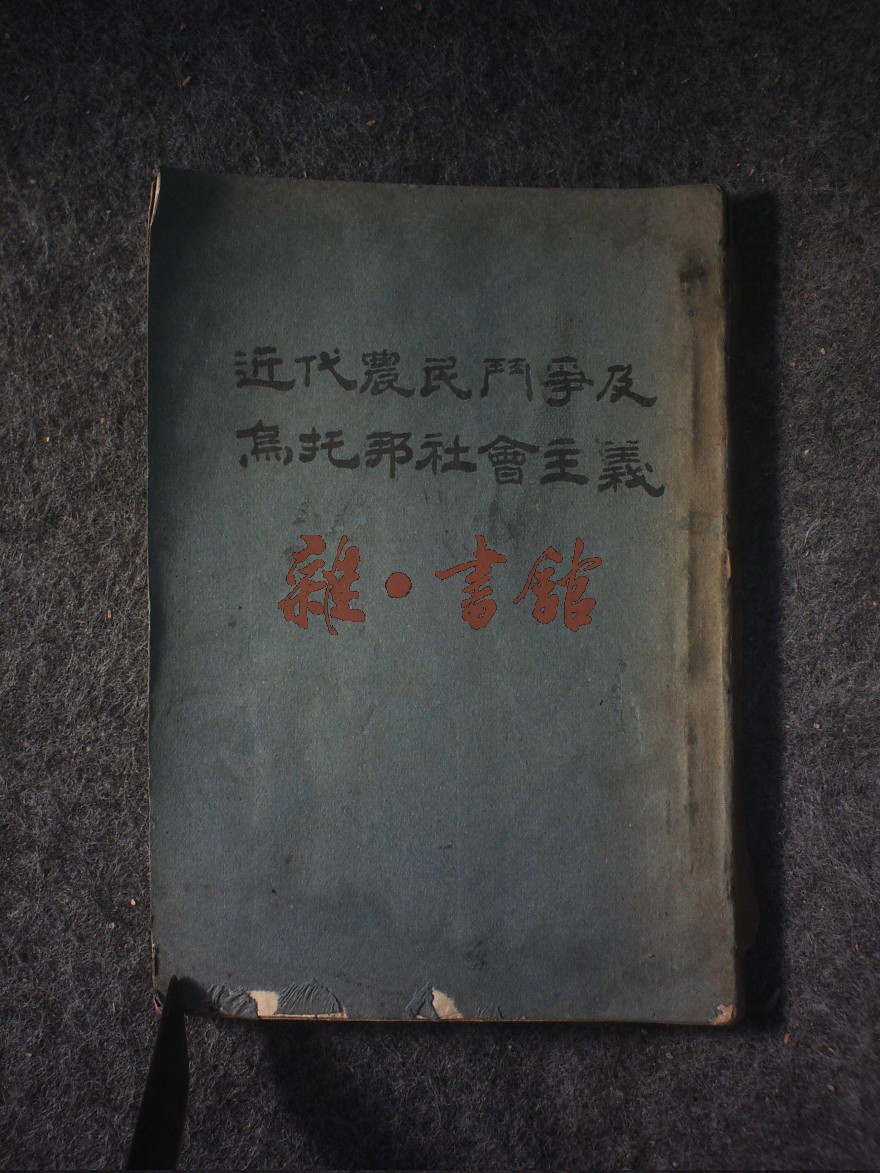 近代農民鬥爭及
烏托邦社會主義
雜·書館